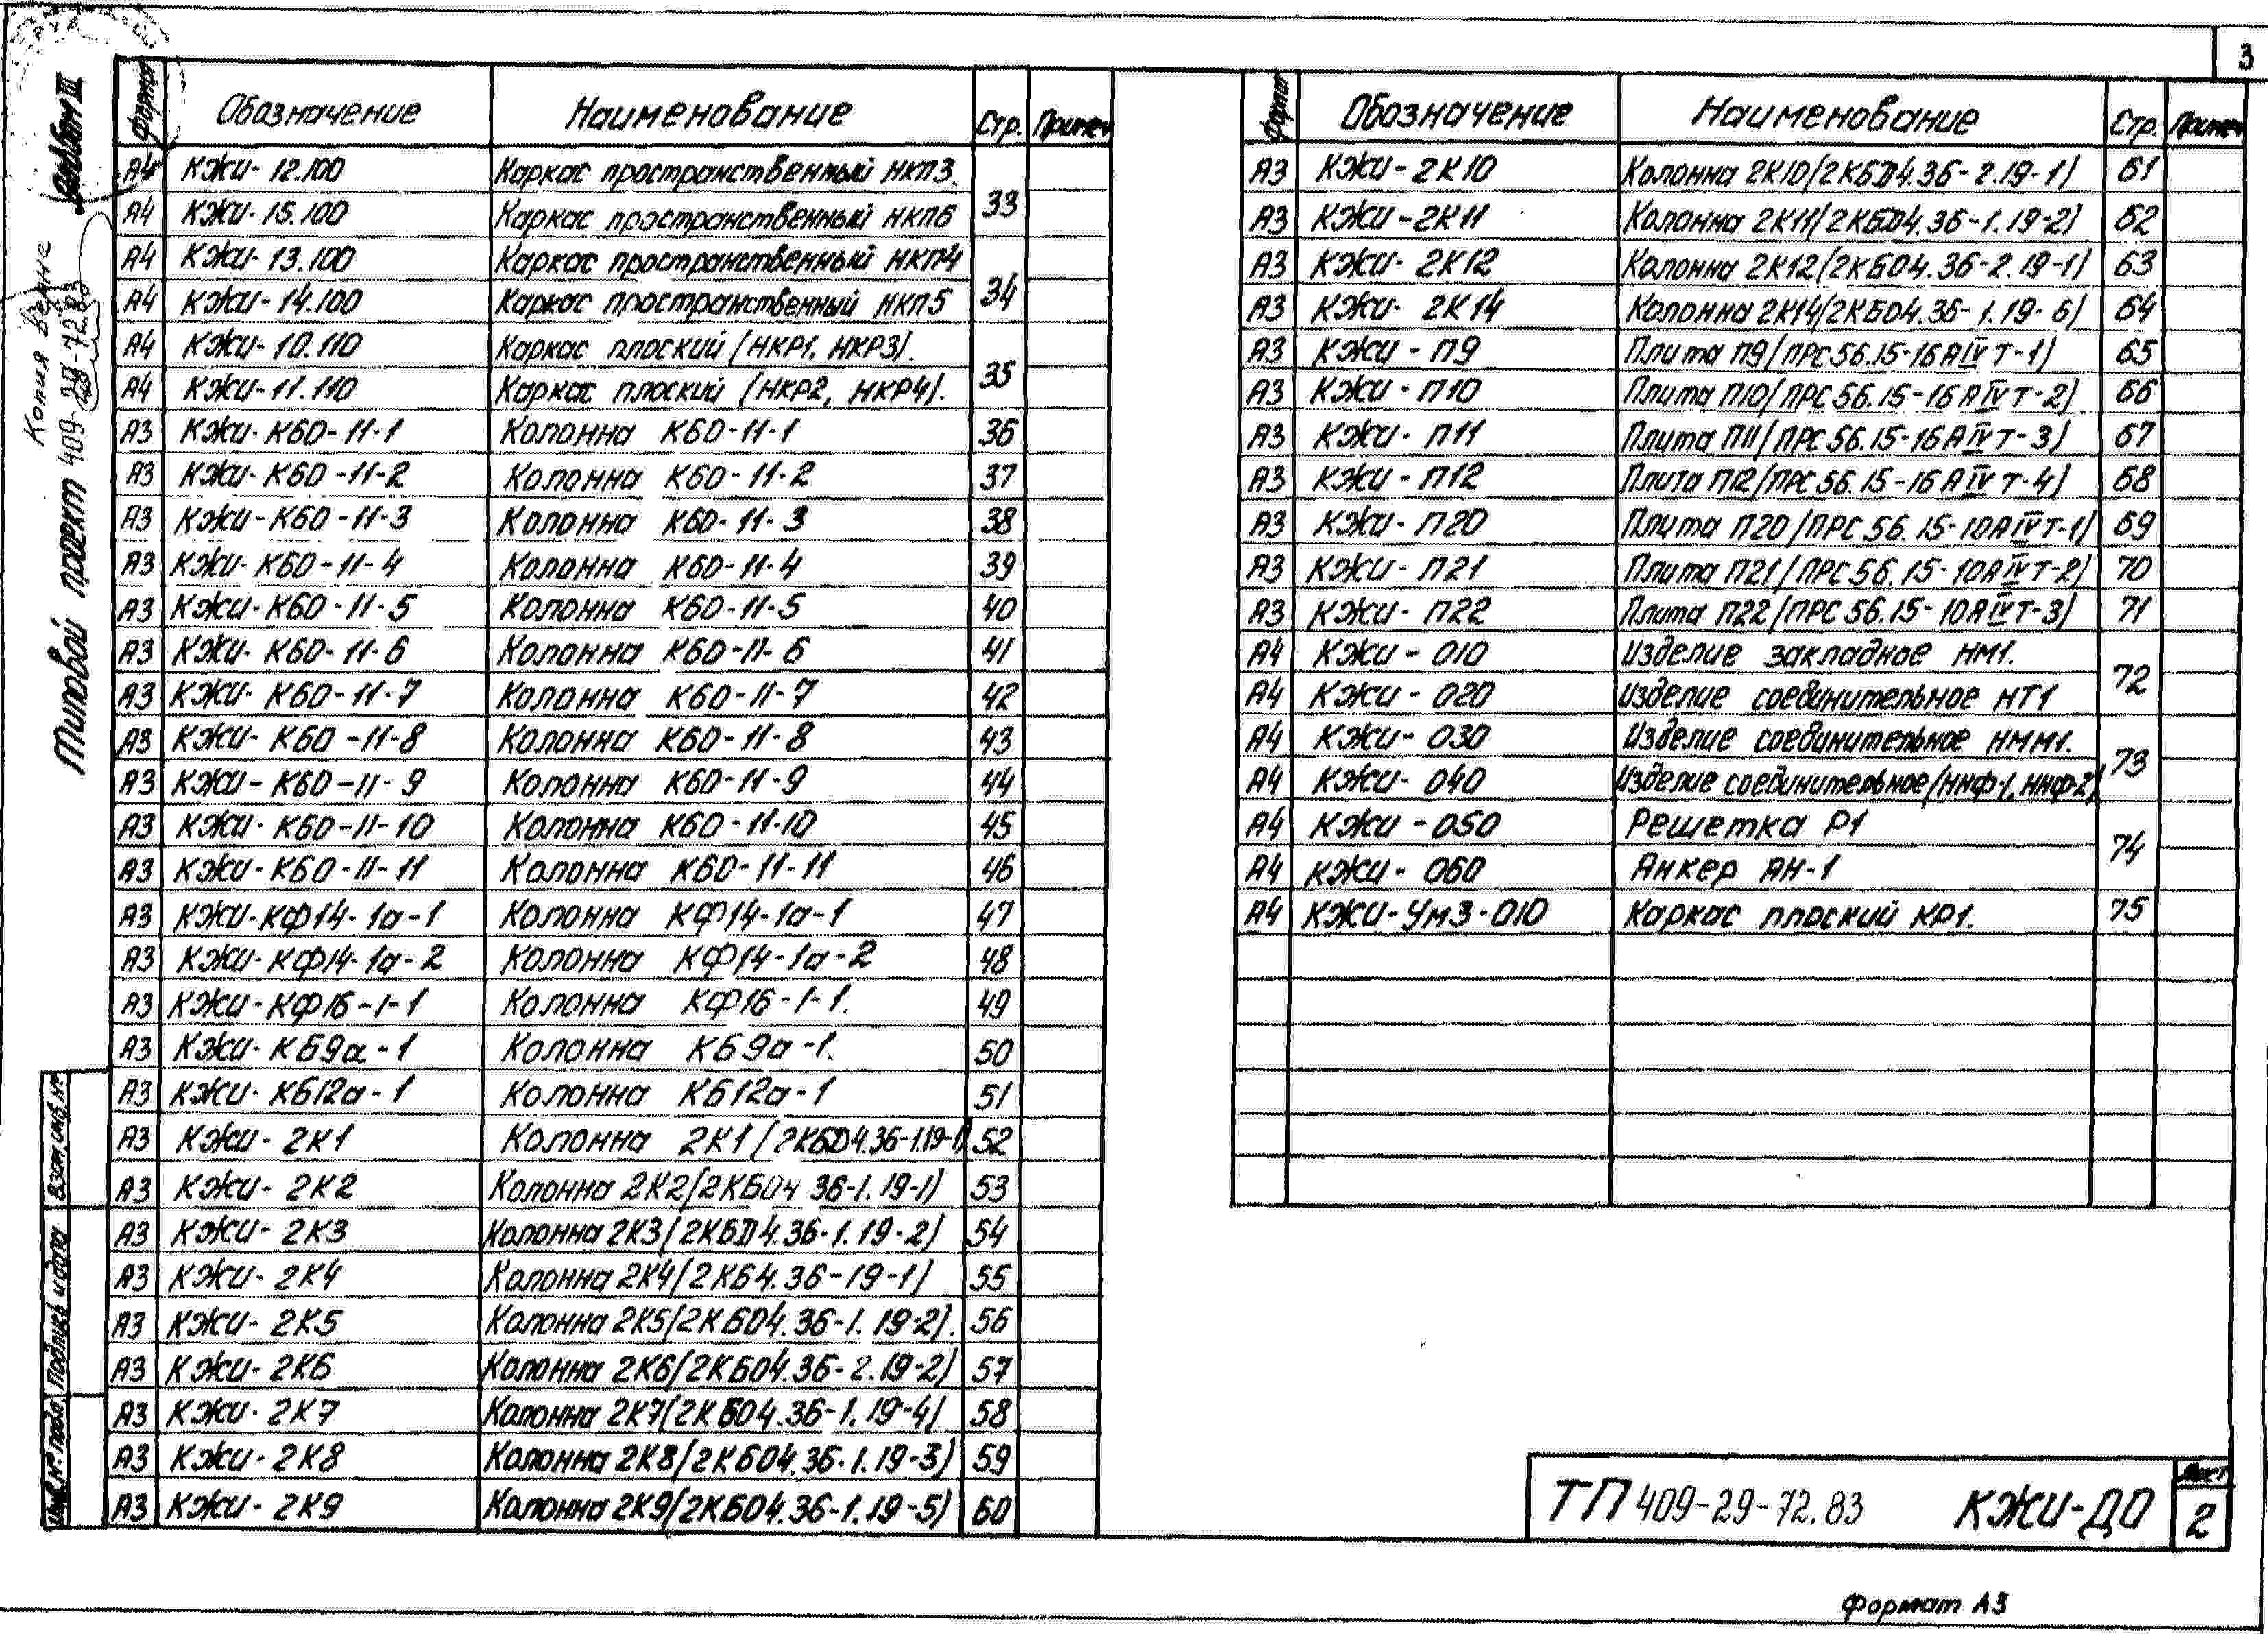 3
Альбом III
Копия верна
Типовой проект 409-29-72.83
Формат Обозначение Наименование Стр. Примеч
А4 КЖИ-12.100 Каркас пространственный НКП3. 33
А4 КЖИ-15.100 Каркас пространственный НКП6
А4 КЖИ-13.100 Каркас пространственный НКП4 34
А4 КЖИ-14.100 Каркас пространственный НКП5
А4 КЖИ-10.110 Каркас плоский (НКР1. НКР3). 35
А4 КЖИ-11.110 Каркас плоский (НКР2, НКР4).
А3 КЖИ-К60-11-1 Колонна К60-11-1 36
А3 КЖИ-К60-11-2 Колонна К60-11-2 37
А3 КЖИ-К60-11-3 Колонна К60-11-3 38
А3 КЖИ-К60-11-4 Колонна К60-11-4 39
А3 КЖИ-К60-11-5 Колонна К60-11-5 40
А3 КЖИ-К60-11-6 Колонна К60-11-6 41
А3 КЖИ-К60-11-7 Колонна К60-11-7 42
А3 КЖИ-К60-11-8 Колонна К60-11-8 43
А3 КЖИ-К60-11-9 Колонна К60-11-9 44
А3 КЖИ-К60-11-10 Колонна К60-11-10 45
А3 КЖИ-К60-11-11 Колонна К60-11-11 46
А3 КЖИ-КФ14-1а-1 Колонна КФ14-1а-1 47
А3 КЖИ-КФ14-1а-2 Колонна КФ14-1а-2 48
А3 КЖИ-КФ16-1-1 Колонна КФ16-1-1. 49
А3 КЖИ-КБ9а-1 Колонна КБ9а-1. 50
А3 КЖИ-КБ12а-1 Колонна КБ12а-1 51
А3 КЖИ-2К1 Колонна 2К1 (2КБД4.36-1.19-1) 52
А3 КЖИ-2К2 Колонна 2К2(2КБО4 36-1.19-1) 53
А3 КЖИ-2К3 Колонна 2К3(2КБД4.36-1.19-2) 54
А3 КЖИ-2К4 Колонна 2К4(2КБ4.36-19-1) 55
А3 КЖИ-2К5 Колонна 2К5(2КБО4.36-1.19-2). 56
А3 КЖИ-2К6 Колонна 2К6(2КБО4.36-2.19-2) 57
А3 КЖИ-2К7 Колонна 2К7(2КБО4.36-1.19-4) 58
А3 КЖИ-2К8 Колонна 2К8(2КБО4.36-1.19-3) 59
А3 КЖИ-2К9 Колонна 2К9(2КБО4.36-1.19-5) 60
Формат Обозначение Наименование Стр. Примеч
А3 КЖИ-2К10 Колонна 2К10(2КБД4.36-2.19-1) 61
А3 КЖИ-2К11 Колонна 2К11(2КБД4.36-1.19-2) 62
А3 КЖИ-2К12 Колонна 2К12(2КБО4.36-2.19-1) 63
А3 КЖИ-2К14 Колонна 2К14(2КБО4.36-1.19-6) 64
А3 КЖИ-П9 Плита П9(ПРС56.15-16АIVТ-1) 65
А3 КЖИ-П10 Плита П10(ПРС56.15-16АIVТ-2) 66
А3 КЖИ-П11 Плита П11(ПРС56.15-16АIVТ-3) 67
А3 КЖИ-П12 Плита П12(ПРС56.15-16АIVТ-4) 68
А3 КЖИ-П20 Плита П20(ПРС56.15-10АIVТ-1) 69
А3 КЖИ-П21 Плита П21(ПРС56.15-10АIVТ-2) 70
А3 КЖИ-П22 Плита П22(ПРС56.15-10АIVТ-3) 71
А4 КЖИ-010 Изделие закладное НМ1. 72
А4 КЖИ-020 Изделие соединительное НТ1
А4 КЖИ-030 Изделие соединительное НММ1. 73
А4 КЖИ-040 Изделие соединительное(ННФ-1, ННФ-2)
А4 КЖИ-050 Решетка Р1 74
А4 КЖИ-060 Анкер АН-1
А4 КЖИ-Ум3-010 Каркас плоский КР1. 75
Взам.инв№
Подпись и дата
Инв.№подл
ТП 409-29-72.83 КЖИ-ДО
Лист
2
Формат А3